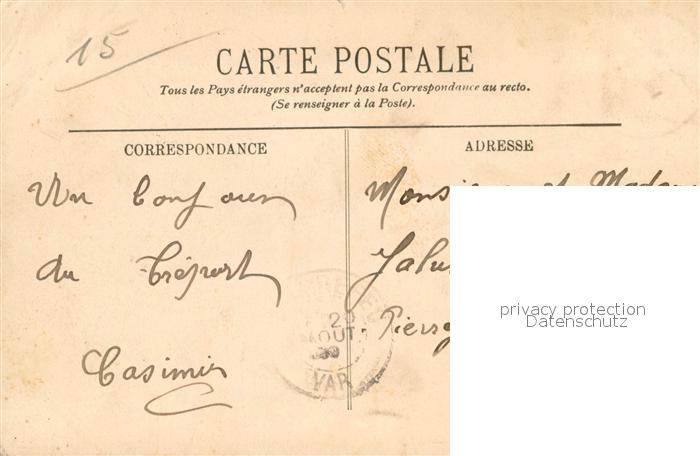 15
CARTE POSTALE
Tous les Pays étrangers n'acceptent pas la Correspondance au recto.
(Se renseigner à la Poste).
CORRESPONDANCE
ADRESSE
Un bonjour
du Tréport
Casimir
Monsieur et Madam
Pierre
AOUT
VAR
privacy protection
Datenschutz